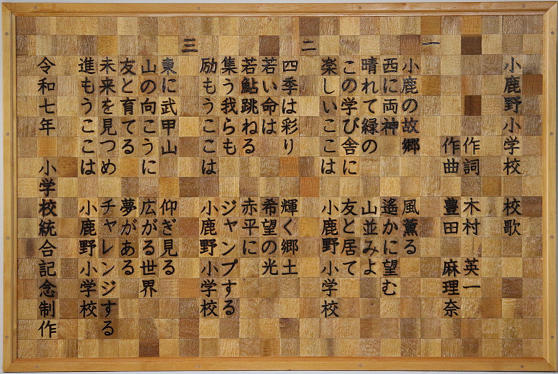 小鹿野小学校 校歌
作詞 木村 英一
作曲 豊田 麻理奈
一
小鹿の故郷 風薫る
西に両神 遙かに望む
晴れて緑の 山並みよ
この学び舎に 友と居て
楽しいここは 小鹿野小学校
二
四季は彩り 輝く郷土
若い命は 希望の光
若鮎跳ねる 赤平に
集う我らも ジャンプする
励もうここは 小鹿野小学校
三
東に武甲山 仰ぎ見る
山の向こうに 広がる世界
友と育てる 夢がある
未来を見つめ チャレンジする
進もうここは 小鹿野小学校
令和七年 小学校統合記念制作